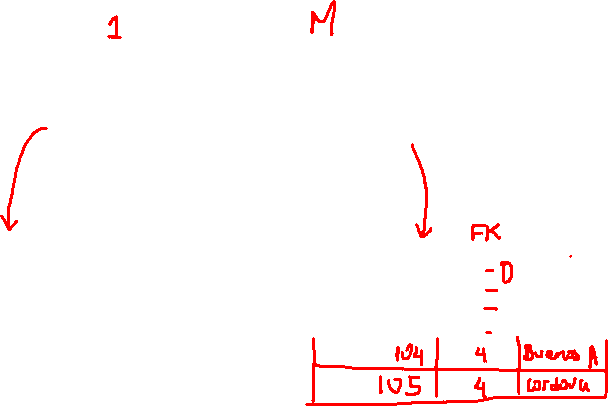 1 M
FK
D
104 4 Buenos A
105 4 Cordova